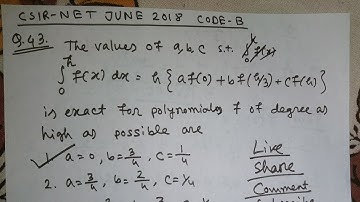 CSIR-NET JUNE 2018 CODE-B
Q.43. The values of a,b,c s.t.
∫₀ʰ f(x) dx = h { a f(0) + b f(h/3) + c f(h) }
is exact for polynomials f of degree as
high as possible are
1. a=0, b=3/4, c=1/4
2. a=3/4, b=2/4, c=1/4
Live
Share
Comment